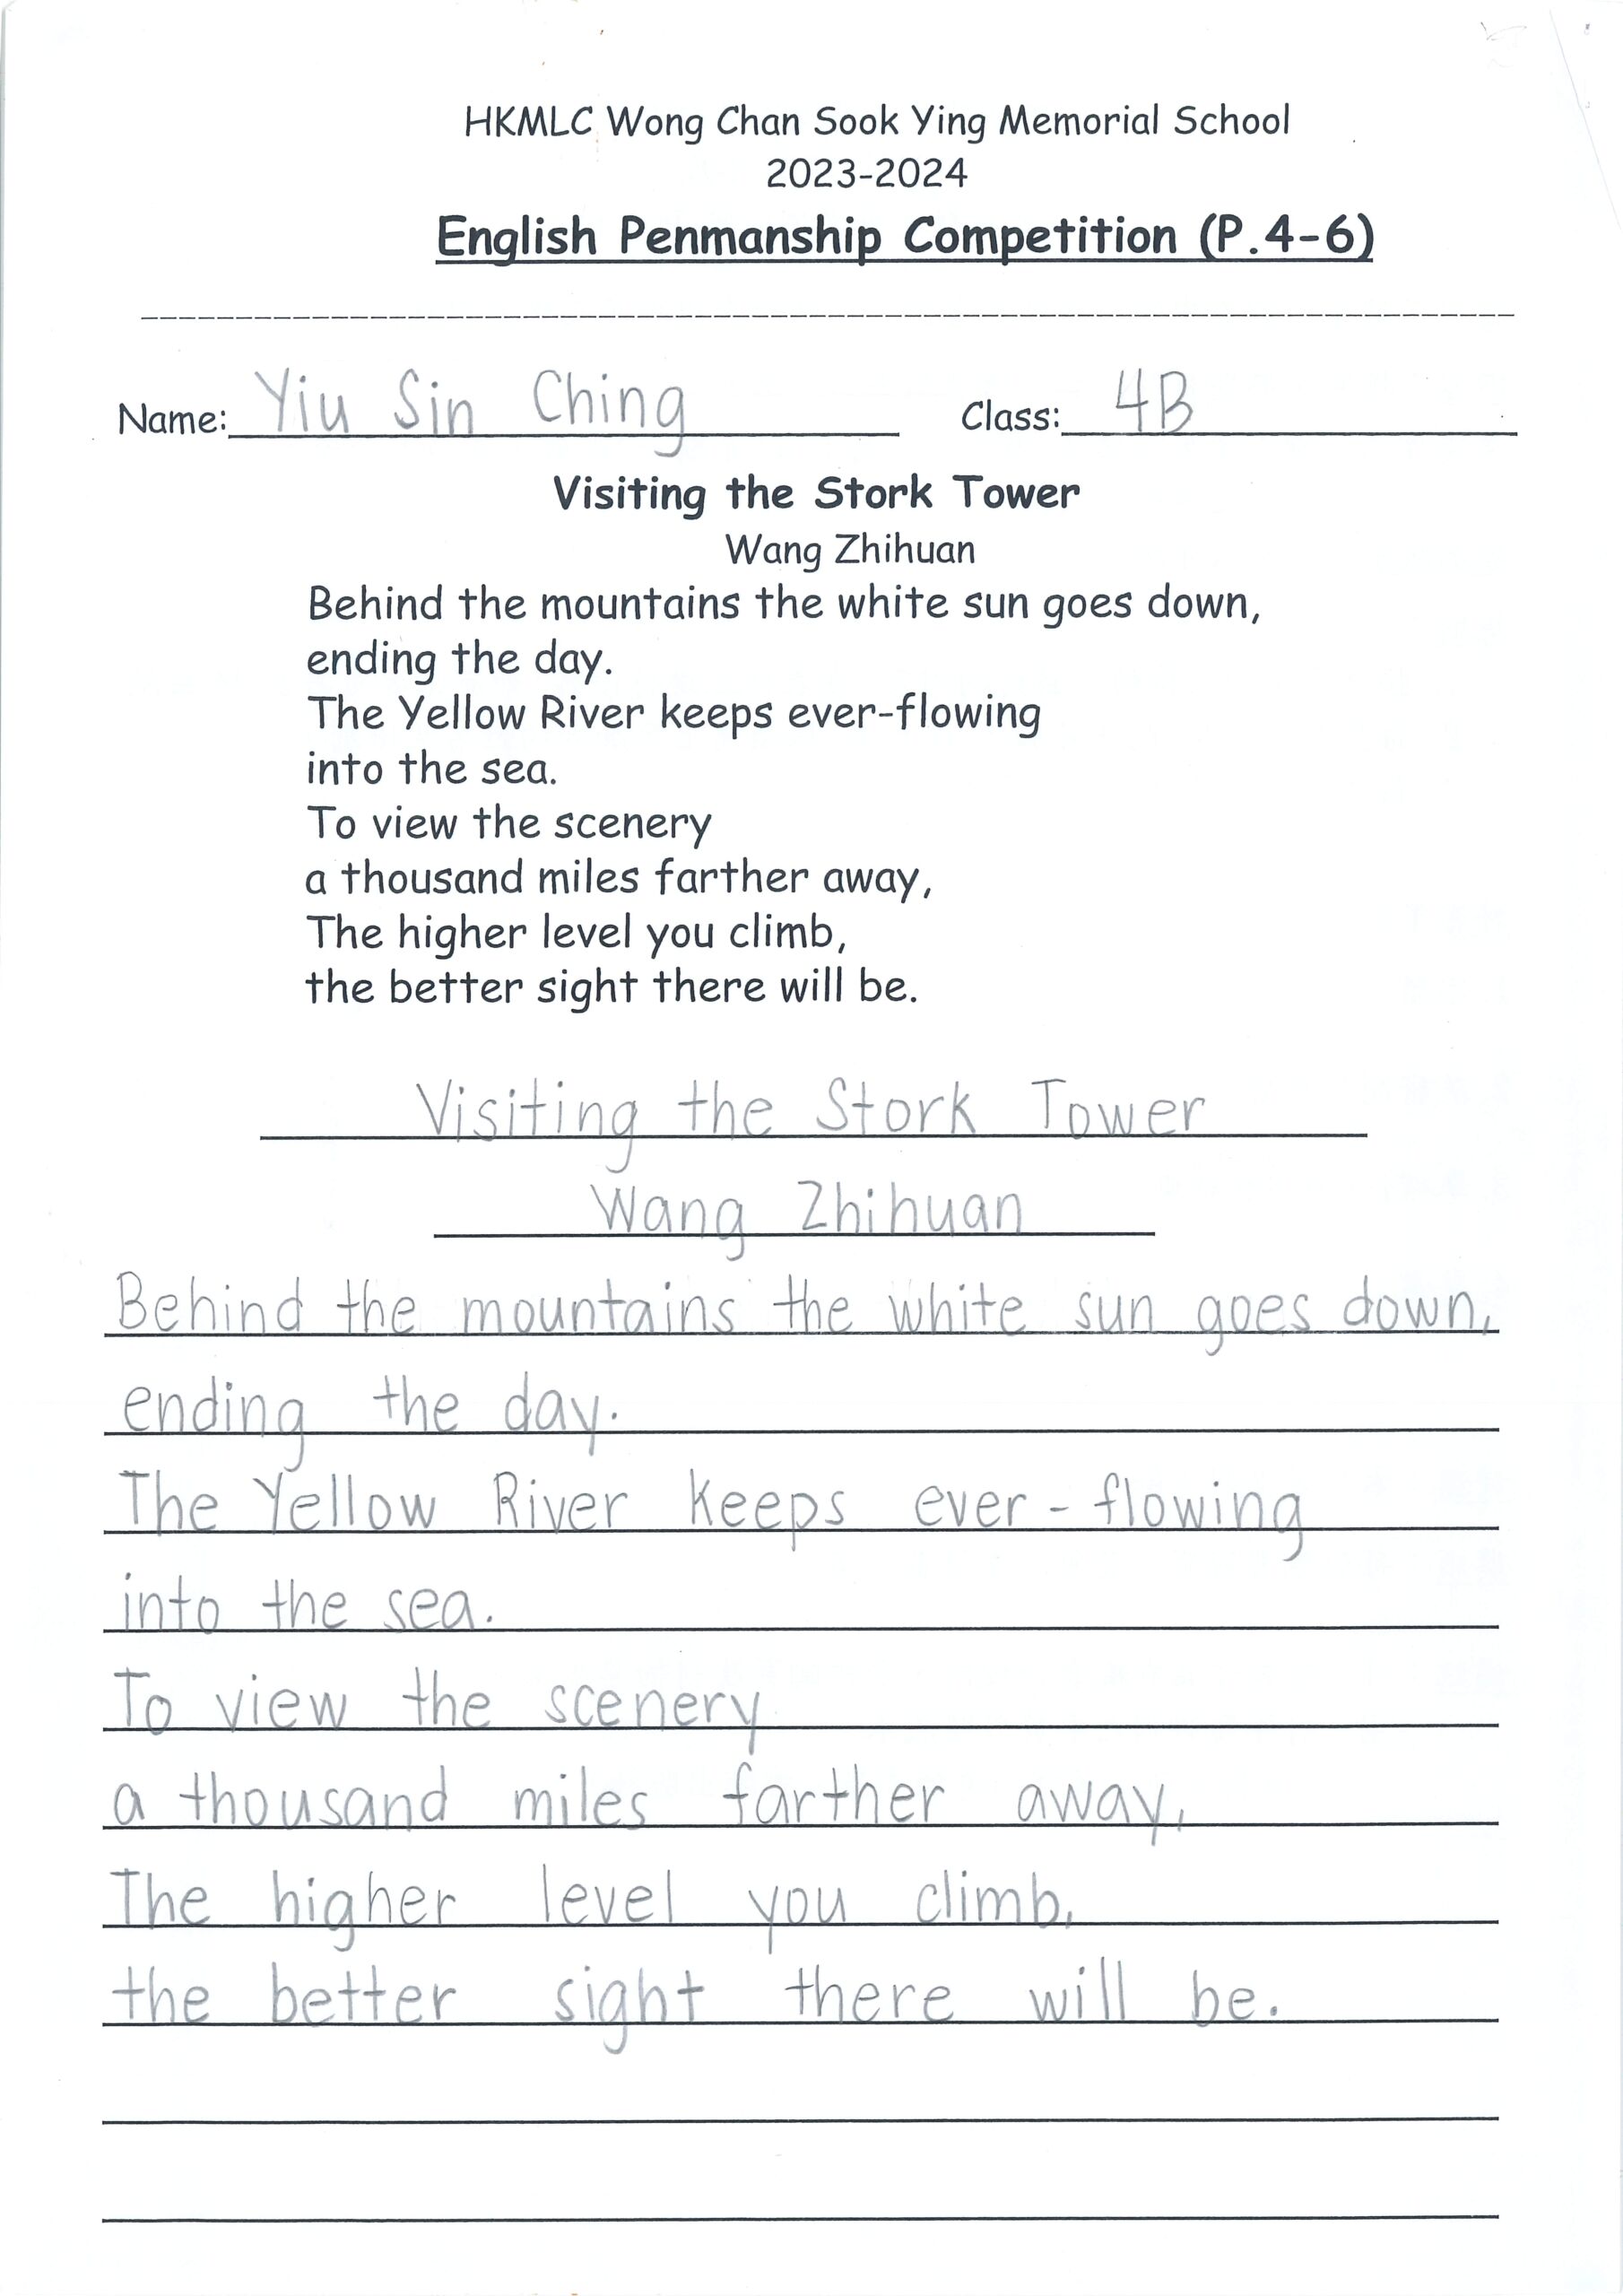 HKMLC Wong Chan Sook Ying Memorial School
2023-2024
English Penmanship Competition (P.4-6)
Name: Yiu Sin Ching Class: 4B
Visiting the Stork Tower
Wang Zhihuan
Behind the mountains the white sun goes down,
ending the day.
The Yellow River keeps ever-flowing
into the sea.
To view the scenery
a thousand miles farther away,
The higher level you climb,
the better sight there will be.
Visiting the Stork Tower
Wang Zhihuan
Behind the mountains the white sun goes down,
ending the day.
The Yellow River keeps ever-flowing
into the sea.
To view the scenery
a thousand miles farther away,
The higher level you climb,
the better sight there will be.